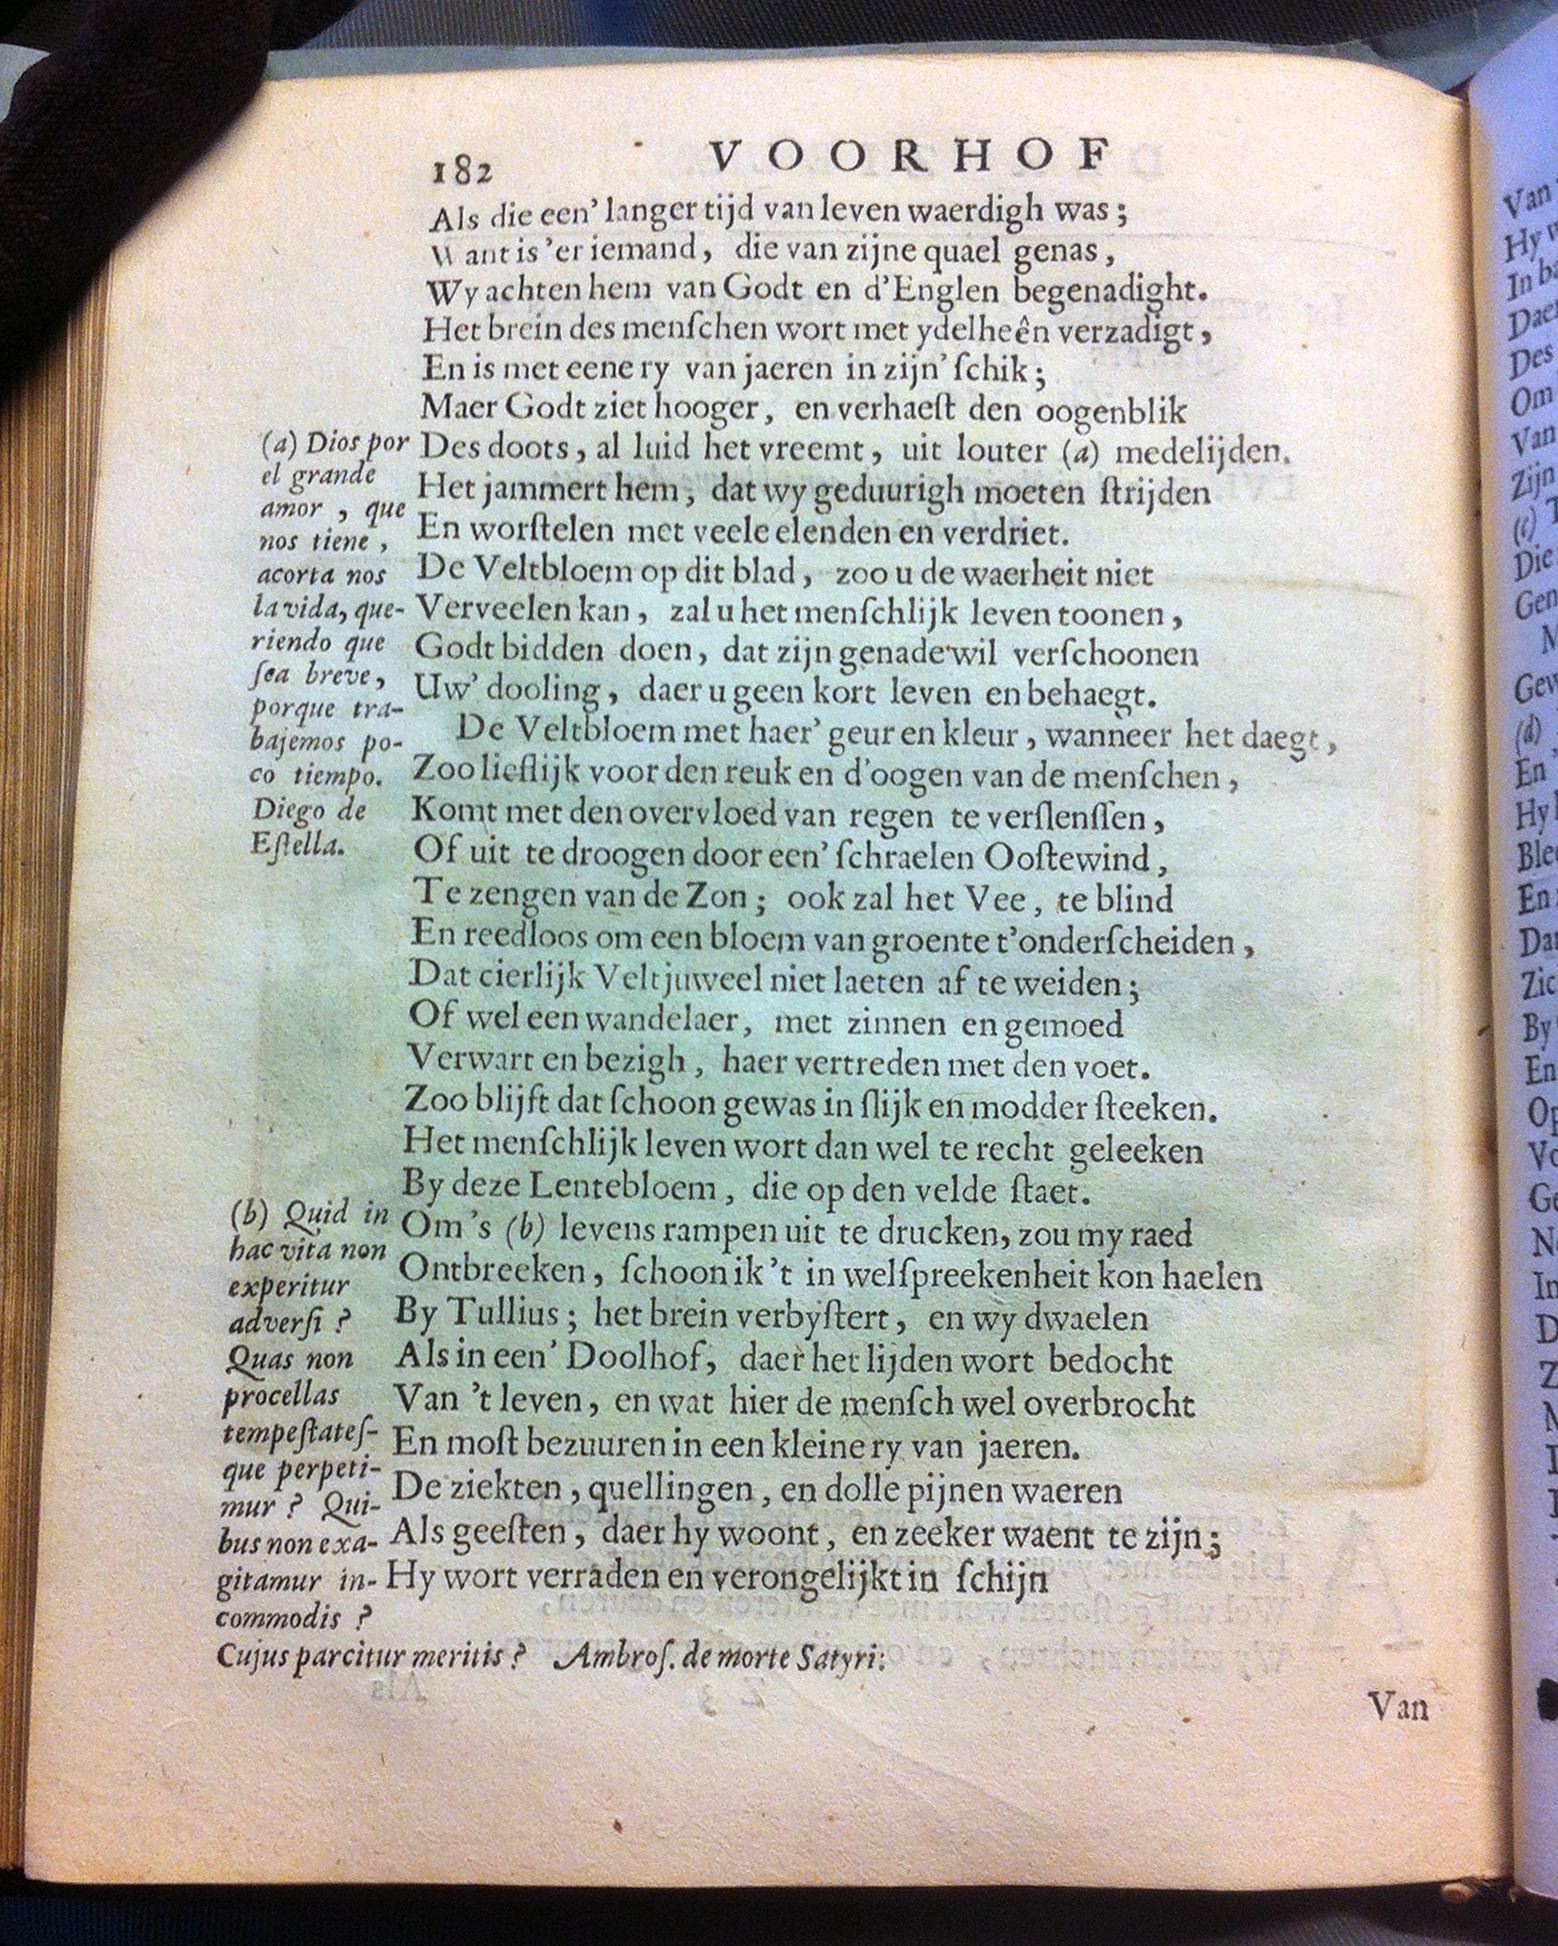 182 VOORHOF
Als die een' langer tijd van leven waerdigh was;
Want is 'er iemand, die van zijne quael genas,
Wy achten hem van Godt en d'Englen begenadight.
Het brein des menſchen wort met ydelheên verzadigt,
En is met eene ry van jaeren in zijn' ſchik;
Maer Godt ziet hooger, en verhaeſt den oogenblik
Des doots, al luid het vreemt, uit louter (a) medelijden.
Het jammert hem, dat wy geduurigh moeten ſtrijden
En worſtelen met veele elenden en verdriet.
De Veltbloem op dit blad, zoo u de waerheit niet
Verveelen kan, zal u het menſchlijk leven toonen,
Godt bidden doen, dat zijn genade wil verſchoonen
Uw' dooling, daer u geen kort leven en behaegt.
De Veltbloem met haer' geur en kleur, wanneer het daegt,
Zoo lieflijk voor den reuk en d'oogen van de menſchen,
Komt met den overvloed van regen te verſlenſſen,
Of uit te droogen door een' ſchraelen Ooſtewind,
Te zengen van de Zon; ook zal het Vee, te blind
En reedloos om een bloem van groente t'onderſcheiden,
Dat cierlijk Veltjuweel niet laeten af te weiden;
Of wel een wandelaer, met zinnen en gemoed
Verwart en bezigh, haer vertreden met den voet.
Zoo blijft dat ſchoon gewas in ſlijk en modder ſteeken.
Het menſchlijk leven wort dan wel te recht geleeken
By deze Lentebloem, die op den velde ſtaet.
Om 's (b) levens rampen uit te drucken, zou my raed
Ontbreeken, ſchoon ik 't in welſpreekenheit kon haelen
By Tullius; het brein verbyſtert, en wy dwaelen
Als in een' Doolhof, daer het lijden wort bedocht
Van 't leven, en wat hier de menſch wel overbrocht
En moſt bezuuren in een kleine ry van jaeren.
De ziekten, quellingen, en dolle pijnen waeren
Als geeſten, daer hy woont, en zeeker waent te zijn;
Hy wort verraden en verongelijkt in ſchijn
(a) Dios por
el grande
amor, que
nos tiene,
acorta nos
la vida, que-
riendo que
ſea breve,
porque tra-
bajemos po-
co tiempo.
Diego de
Eſtella.
(b) Quid in
hac vita non
experitur
adverſi?
Quas non
procellas
tempeſtateſ-
que perpeti-
mur? Qui-
bus non exa-
gitamur in-
commodis?
Cujus parcitur meritis? Ambroſ. de morte Satyri.
Van
Van
Hy
In
Des
Om
Van
Zijn
(c)
Die
M
(d)
En
Hy
En
Zic
By
En
Op
In